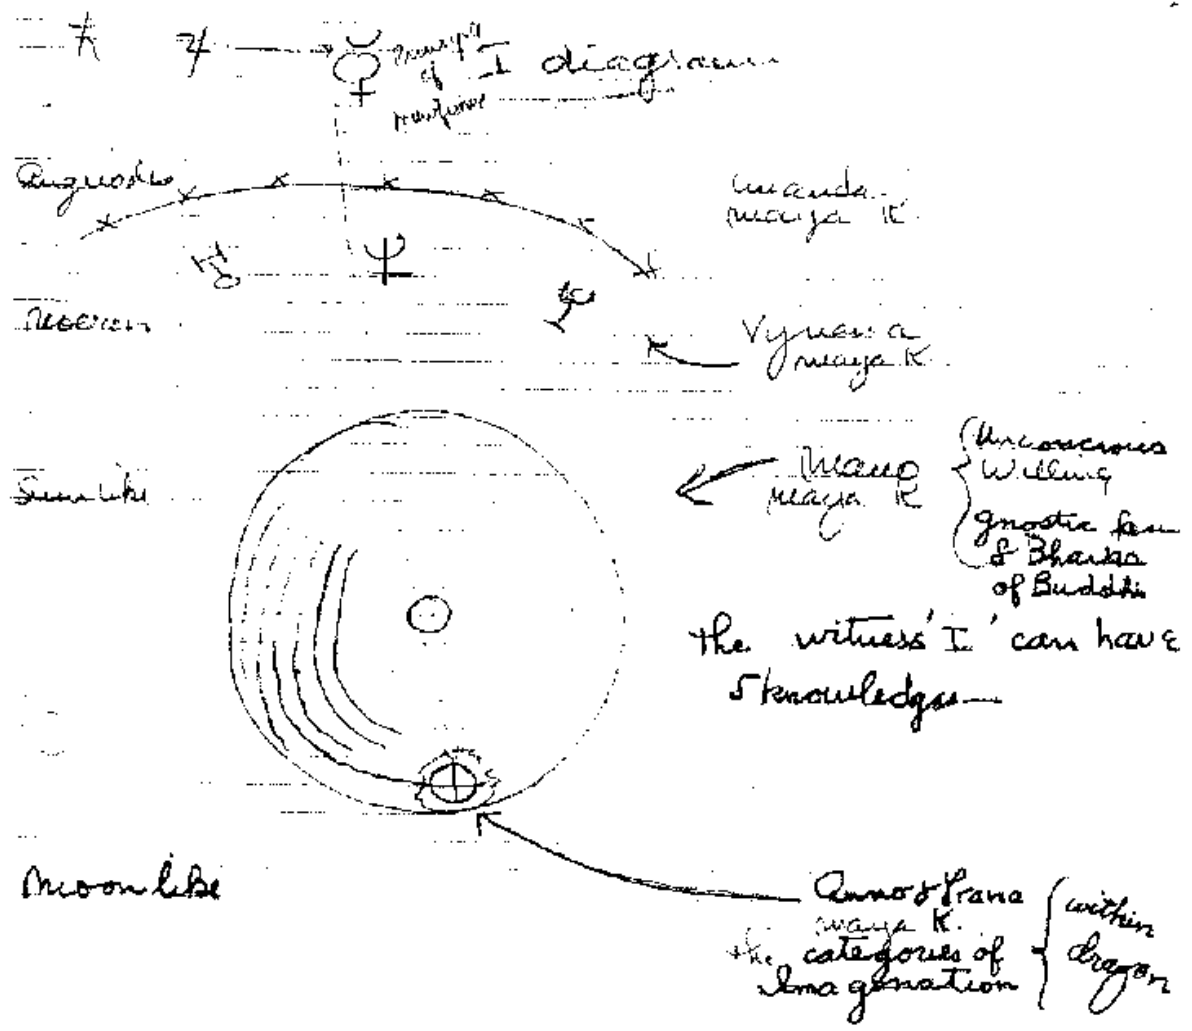 of I diagram
ananda
maya K.
Vynana
maya K.
Sunlike
mano
maya K
Unconscious
Willing
gnostic
& Bhavas
of Buddhi
the witness 'I' can have
5 knowledges
Moonlike
Anno & Prana
maya K.
the categories of
Imagenation
within
dragon